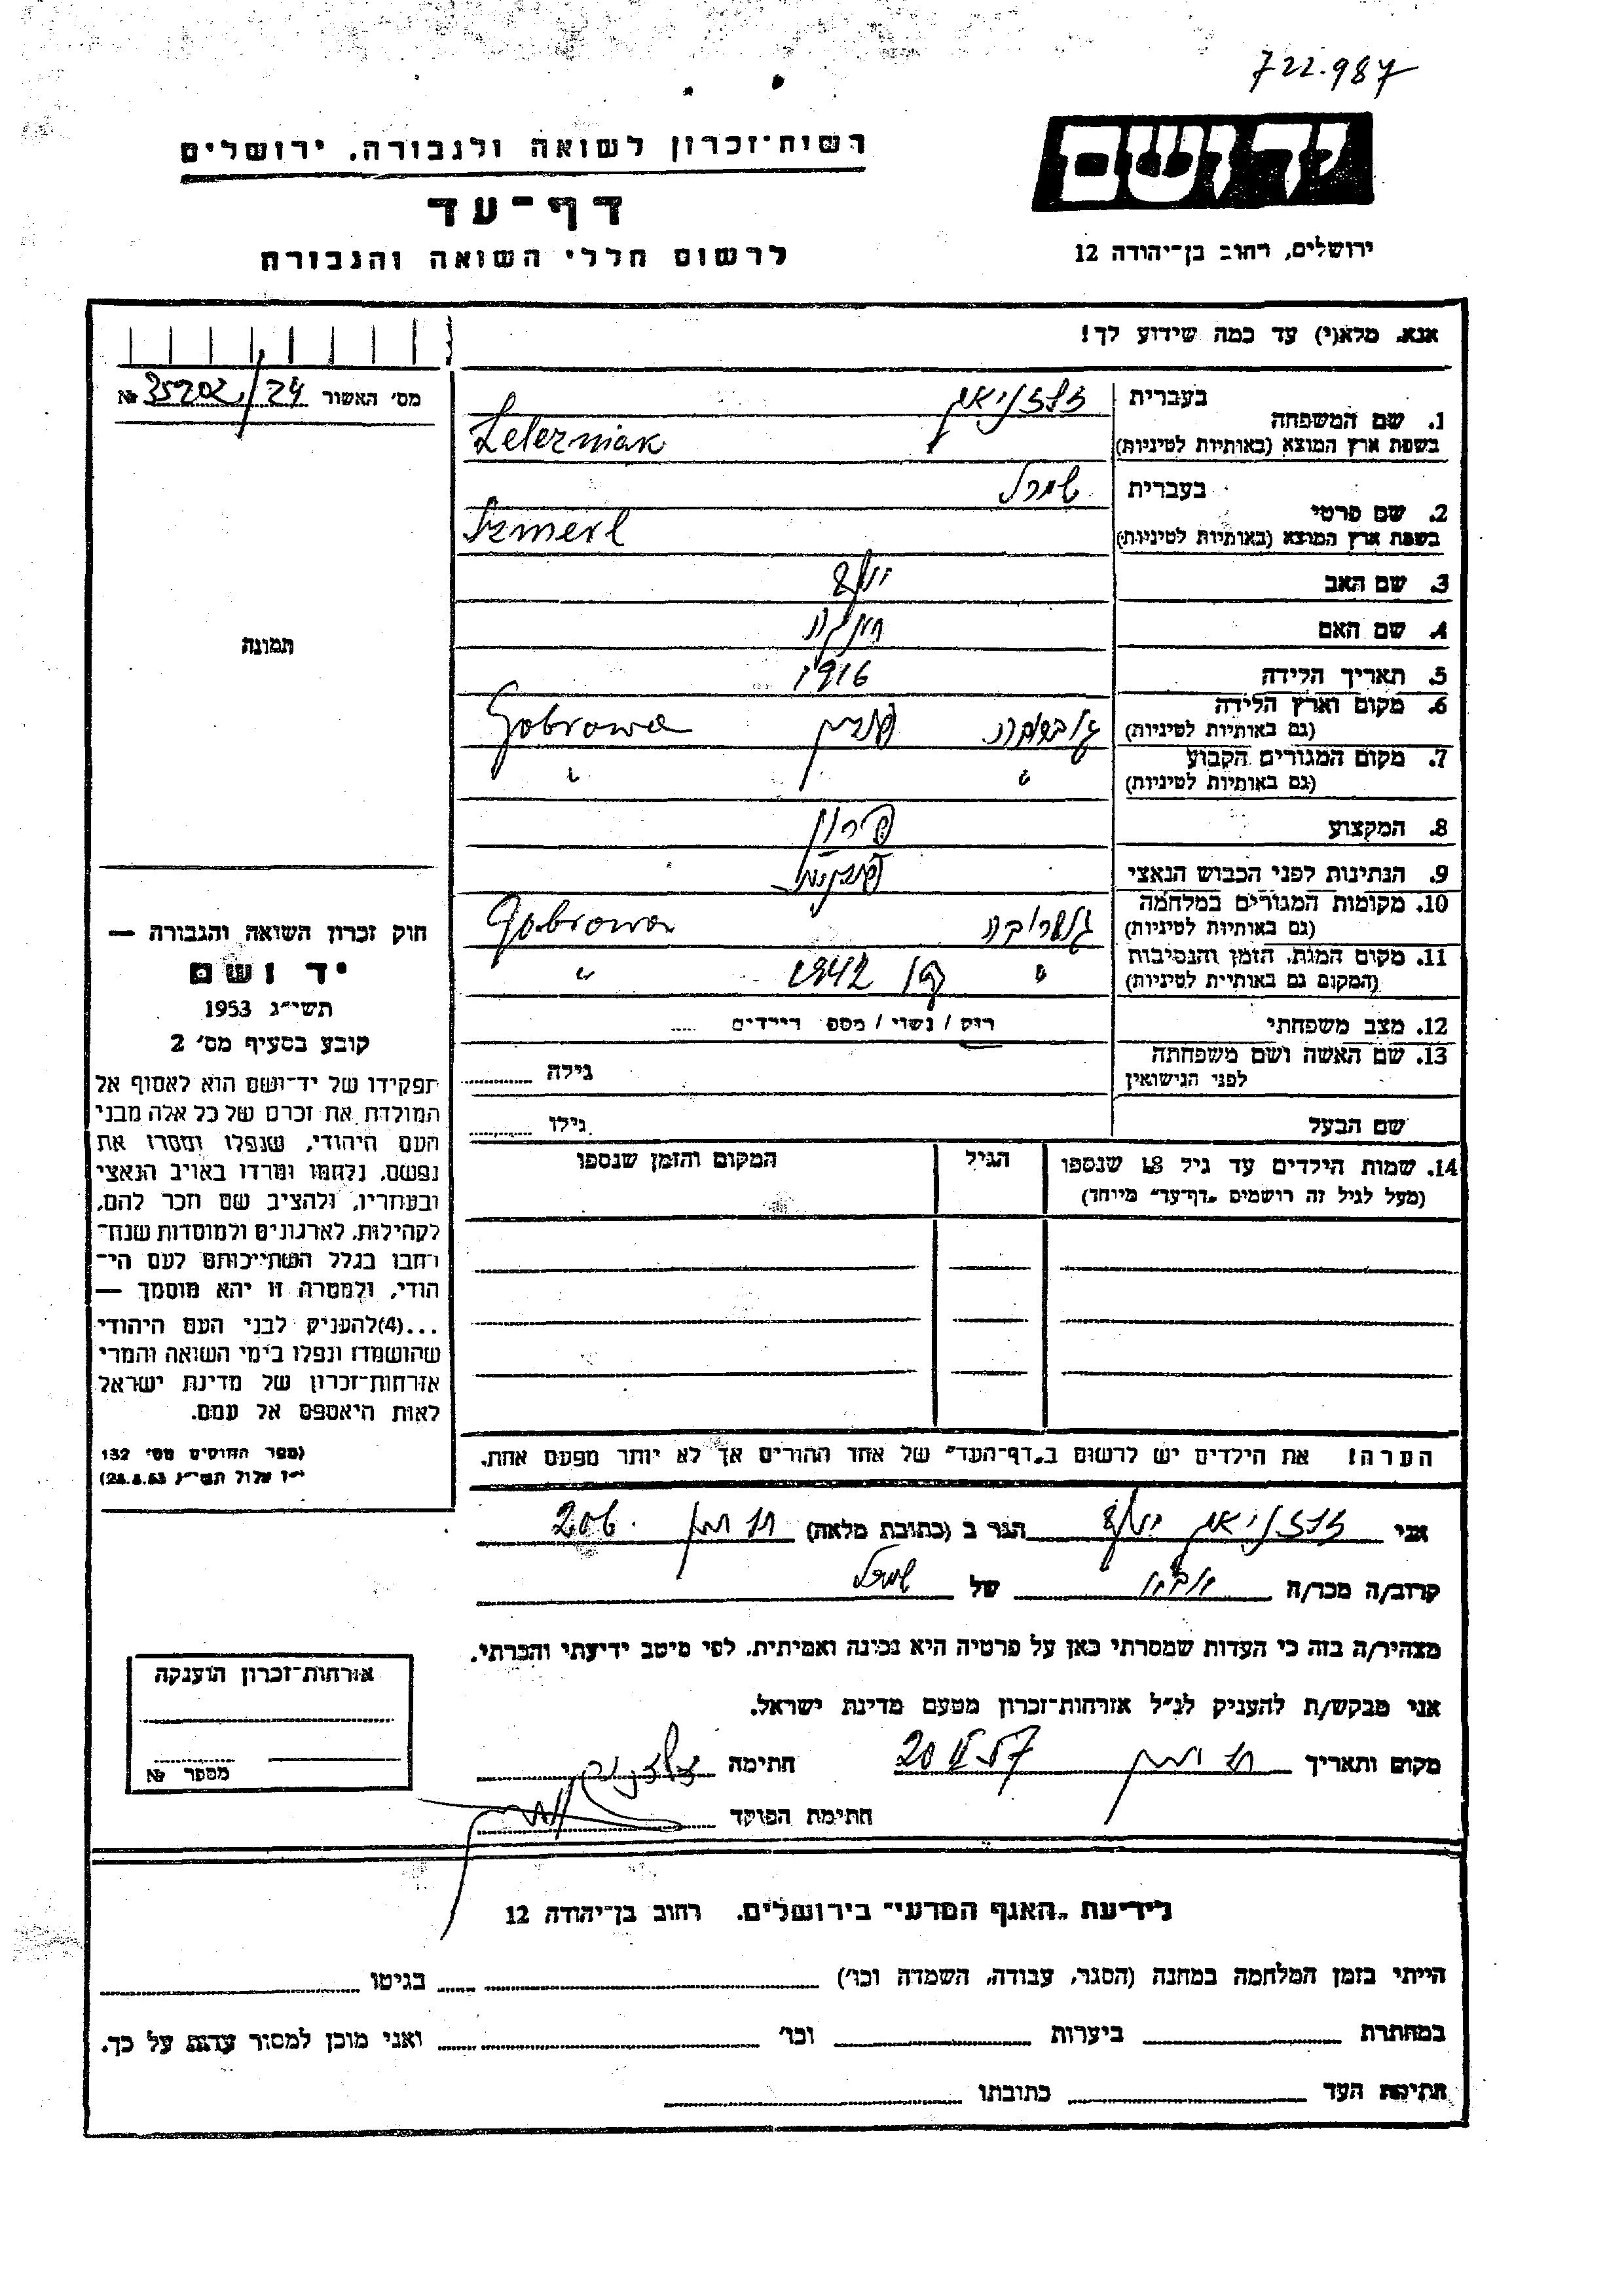 722.987
יד ושם
ירושלים, רחוב בן־יהודה 12
רשות־זכרון לשואה ולגבורה, ירושלים
דף־עד
לרשום חללי השואה והגבורה
אנא, מלא(י) עד כמה שידוע לך!
מס' האשור 35202/24 №
1. שם המשפחה בעברית
בשפת ארץ המוצא (באותיות לטיניות) Zelezniak
2. שם פרטי בעברית שמרל
בשפת ארץ המוצא (באותיות לטיניות) Szmerl
3. שם האב יוסף
4. שם האם
5. תאריך הלידה 1916
6. מקום וארץ הלידה פולין Gobrowa
(גם באותיות לטיניות)
7. מקום המגורים הקבוע " "
(גם באותיות לטיניות)
8. המקצוע
9. הנתינות לפני הכבוש הנאצי
10. מקומות המגורים במלחמה Gobrowa
(גם באותיות לטיניות)
11. מקום המות, הזמן והנסיבות " 1942 "
(המקום גם באותיות לטיניות)
12. מצב משפחתי רוק / נשוי / מספר הילדים .....
13. שם האשה ושם משפחתה גילה
לפני הנישואין
שם הבעל גילו
14. שמות הילדים עד גיל 18 שנספו הגיל המקום והזמן שנספו
(מעל לגיל זה רושמים "דף־עד" מיוחד)
הערה! את הילדים יש לרשום ב"דף־העד" של אחד ההורים אך לא יותר מפעם אחת.
תמונה
חוק זכרון השואה והגבורה —
יד ושם
תשי"ג 1953
קובע בסעיף מס' 2
תפקידו של יד־ושם הוא לאסוף אל
המולדת את זכרם של כל אלה מבני
העם היהודי, שנפלו ומסרו את
נפשם, נלחמו ומרדו באויב הנאצי
ובעוזריו, ולהציב שם וזכר להם,
לקהילות, לארגונים ולמוסדות שנח־
רבו בגלל השתייכותם לעם הי־
הודי, ולמטרה זו יהא מוסמך —
...(4) להעניק לבני העם היהודי
שהושמדו ונפלו בימי השואה והמרי
אזרחות־זכרון של מדינת ישראל
לאות היאספם אל עמם.
(ספר החוקים מס' 132
י"ז אלול תשי"ג 28.8.53)
אני יוסף הגר ב (כתובת מלאה) 206
קרוב/ה מכר/ה של שמרל
מצהיר/ה בזה כי העדות שמסרתי כאן על פרטיה היא נכונה ואמיתית, לפי מיטב ידיעתי והכרתי.
אני מבקש/ת להעניק לנ"ל אזרחות־זכרון מטעם מדינת ישראל.
מקום ותאריך 20 57 חתימה
חתימת הפוקד
אזרחות־זכרון הוענקה
מספר №
לידיעת "האגף המדעי" בירושלים, רחוב בן־יהודה 12
הייתי בזמן המלחמה במחנה (הסגר, עבודה, השמדה וכו') בגיטו
במחתרת ביערות וכו' ואני מוכן למסור עדות על כך.
חתימת העד כתובתו